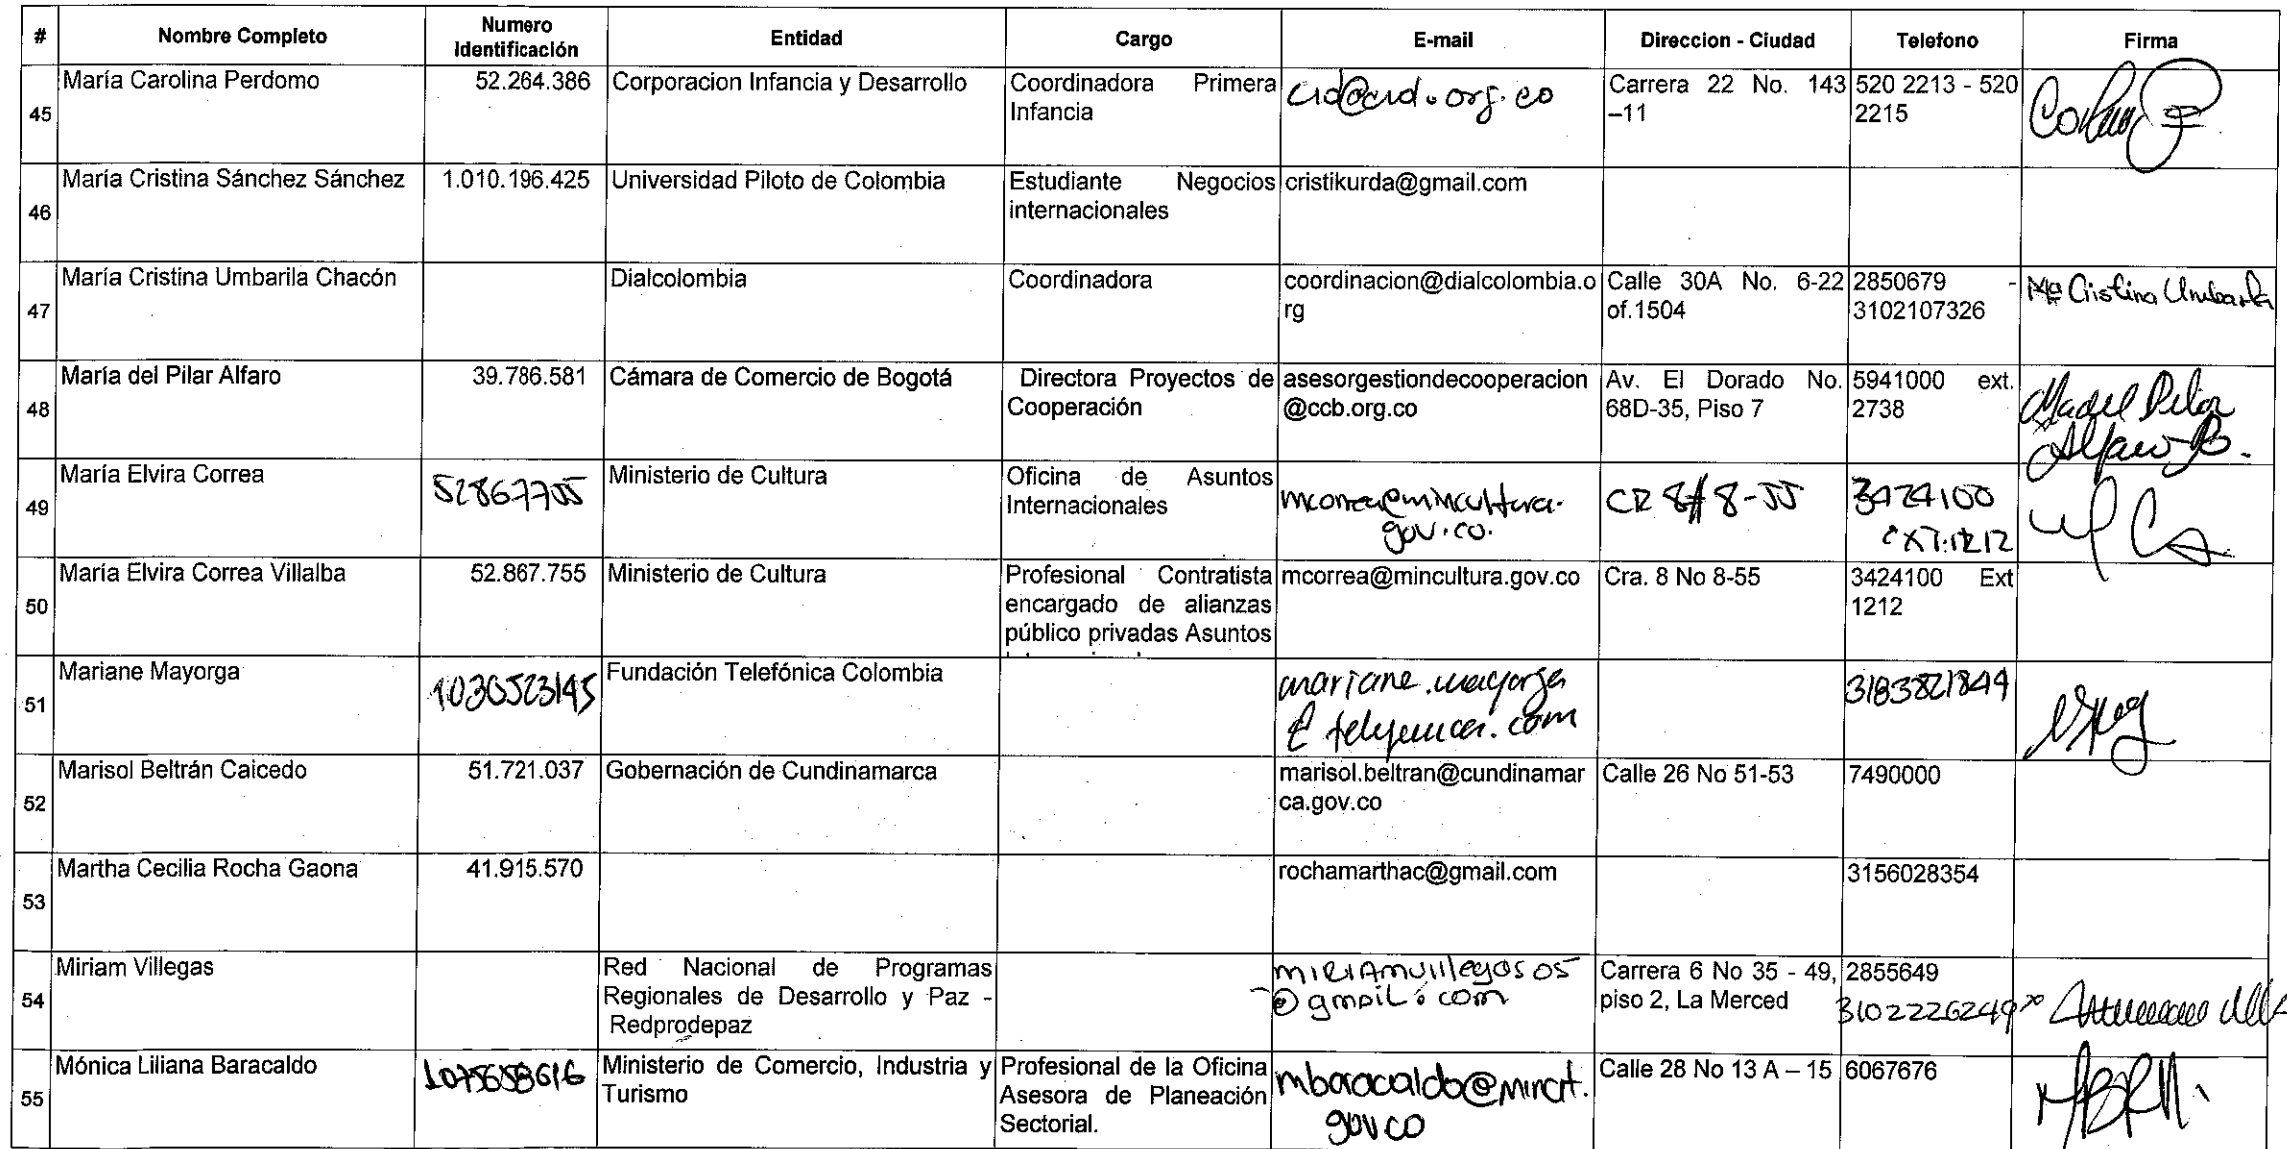 # Nombre Completo Numero Identificación Entidad Cargo E-mail Direccion - Ciudad Telefono Firma
45 María Carolina Perdomo 52.264.386 Corporacion Infancia y Desarrollo Coordinadora Primera Infancia cid@cid.org.co Carrera 22 No. 143 –11 520 2213 - 520 2215
46 María Cristina Sánchez Sánchez 1.010.196.425 Universidad Piloto de Colombia Estudiante Negocios internacionales cristikurda@gmail.com
47 María Cristina Umbarila Chacón Dialcolombia Coordinadora coordinacion@dialcolombia.org Calle 30A No. 6-22 of.1504 2850679 - 3102107326 Mª Cristina Umbarila
48 María del Pilar Alfaro 39.786.581 Cámara de Comercio de Bogotá Directora Proyectos de Cooperación asesorgestiondecooperacion@ccb.org.co Av. El Dorado No. 68D-35, Piso 7 5941000 ext. 2738 Ma del Pilar Alfaro
49 María Elvira Correa 52867755 Ministerio de Cultura Oficina de Asuntos Internacionales mcorrea@mincultura.gov.co. CR 8 # 8-55 3424100 EXT:1212
50 María Elvira Correa Villalba 52.867.755 Ministerio de Cultura Profesional Contratista encargado de alianzas público privadas Asuntos mcorrea@mincultura.gov.co Cra. 8 No 8-55 3424100 Ext 1212
51 Mariane Mayorga 1030523145 Fundación Telefónica Colombia mariane.mayorga@telefonica.com 3183821844
52 Marisol Beltrán Caicedo 51.721.037 Gobernación de Cundinamarca marisol.beltran@cundinamarca.gov.co Calle 26 No 51-53 7490000
53 Martha Cecilia Rocha Gaona 41.915.570 rochamarthac@gmail.com 3156028354
54 Miriam Villegas Red Nacional de Programas Regionales de Desarrollo y Paz - Redprodepaz miriamvillegas05@gmail.com Carrera 6 No 35 - 49, piso 2, La Merced 2855649 3102226249
55 Mónica Liliana Baracaldo 1075658616 Ministerio de Comercio, Industria y Turismo Profesional de la Oficina Asesora de Planeación Sectorial. mbaracaldo@mincit.gov.co Calle 28 No 13 A – 15 6067676